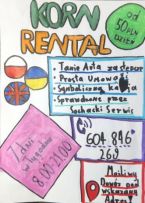 KORN
RENTAL
od
50PLN
Dzień
• Tanie Auta zastępcze
• Prosta Umowa
• Symboliczna kaucja
• Sprawdzone przez
Sochacki Serwis
7 dni
w Tygodniu
8.00-21.00
604 896
269
Możliwy
Dowóz pod
wskazany
Adres!